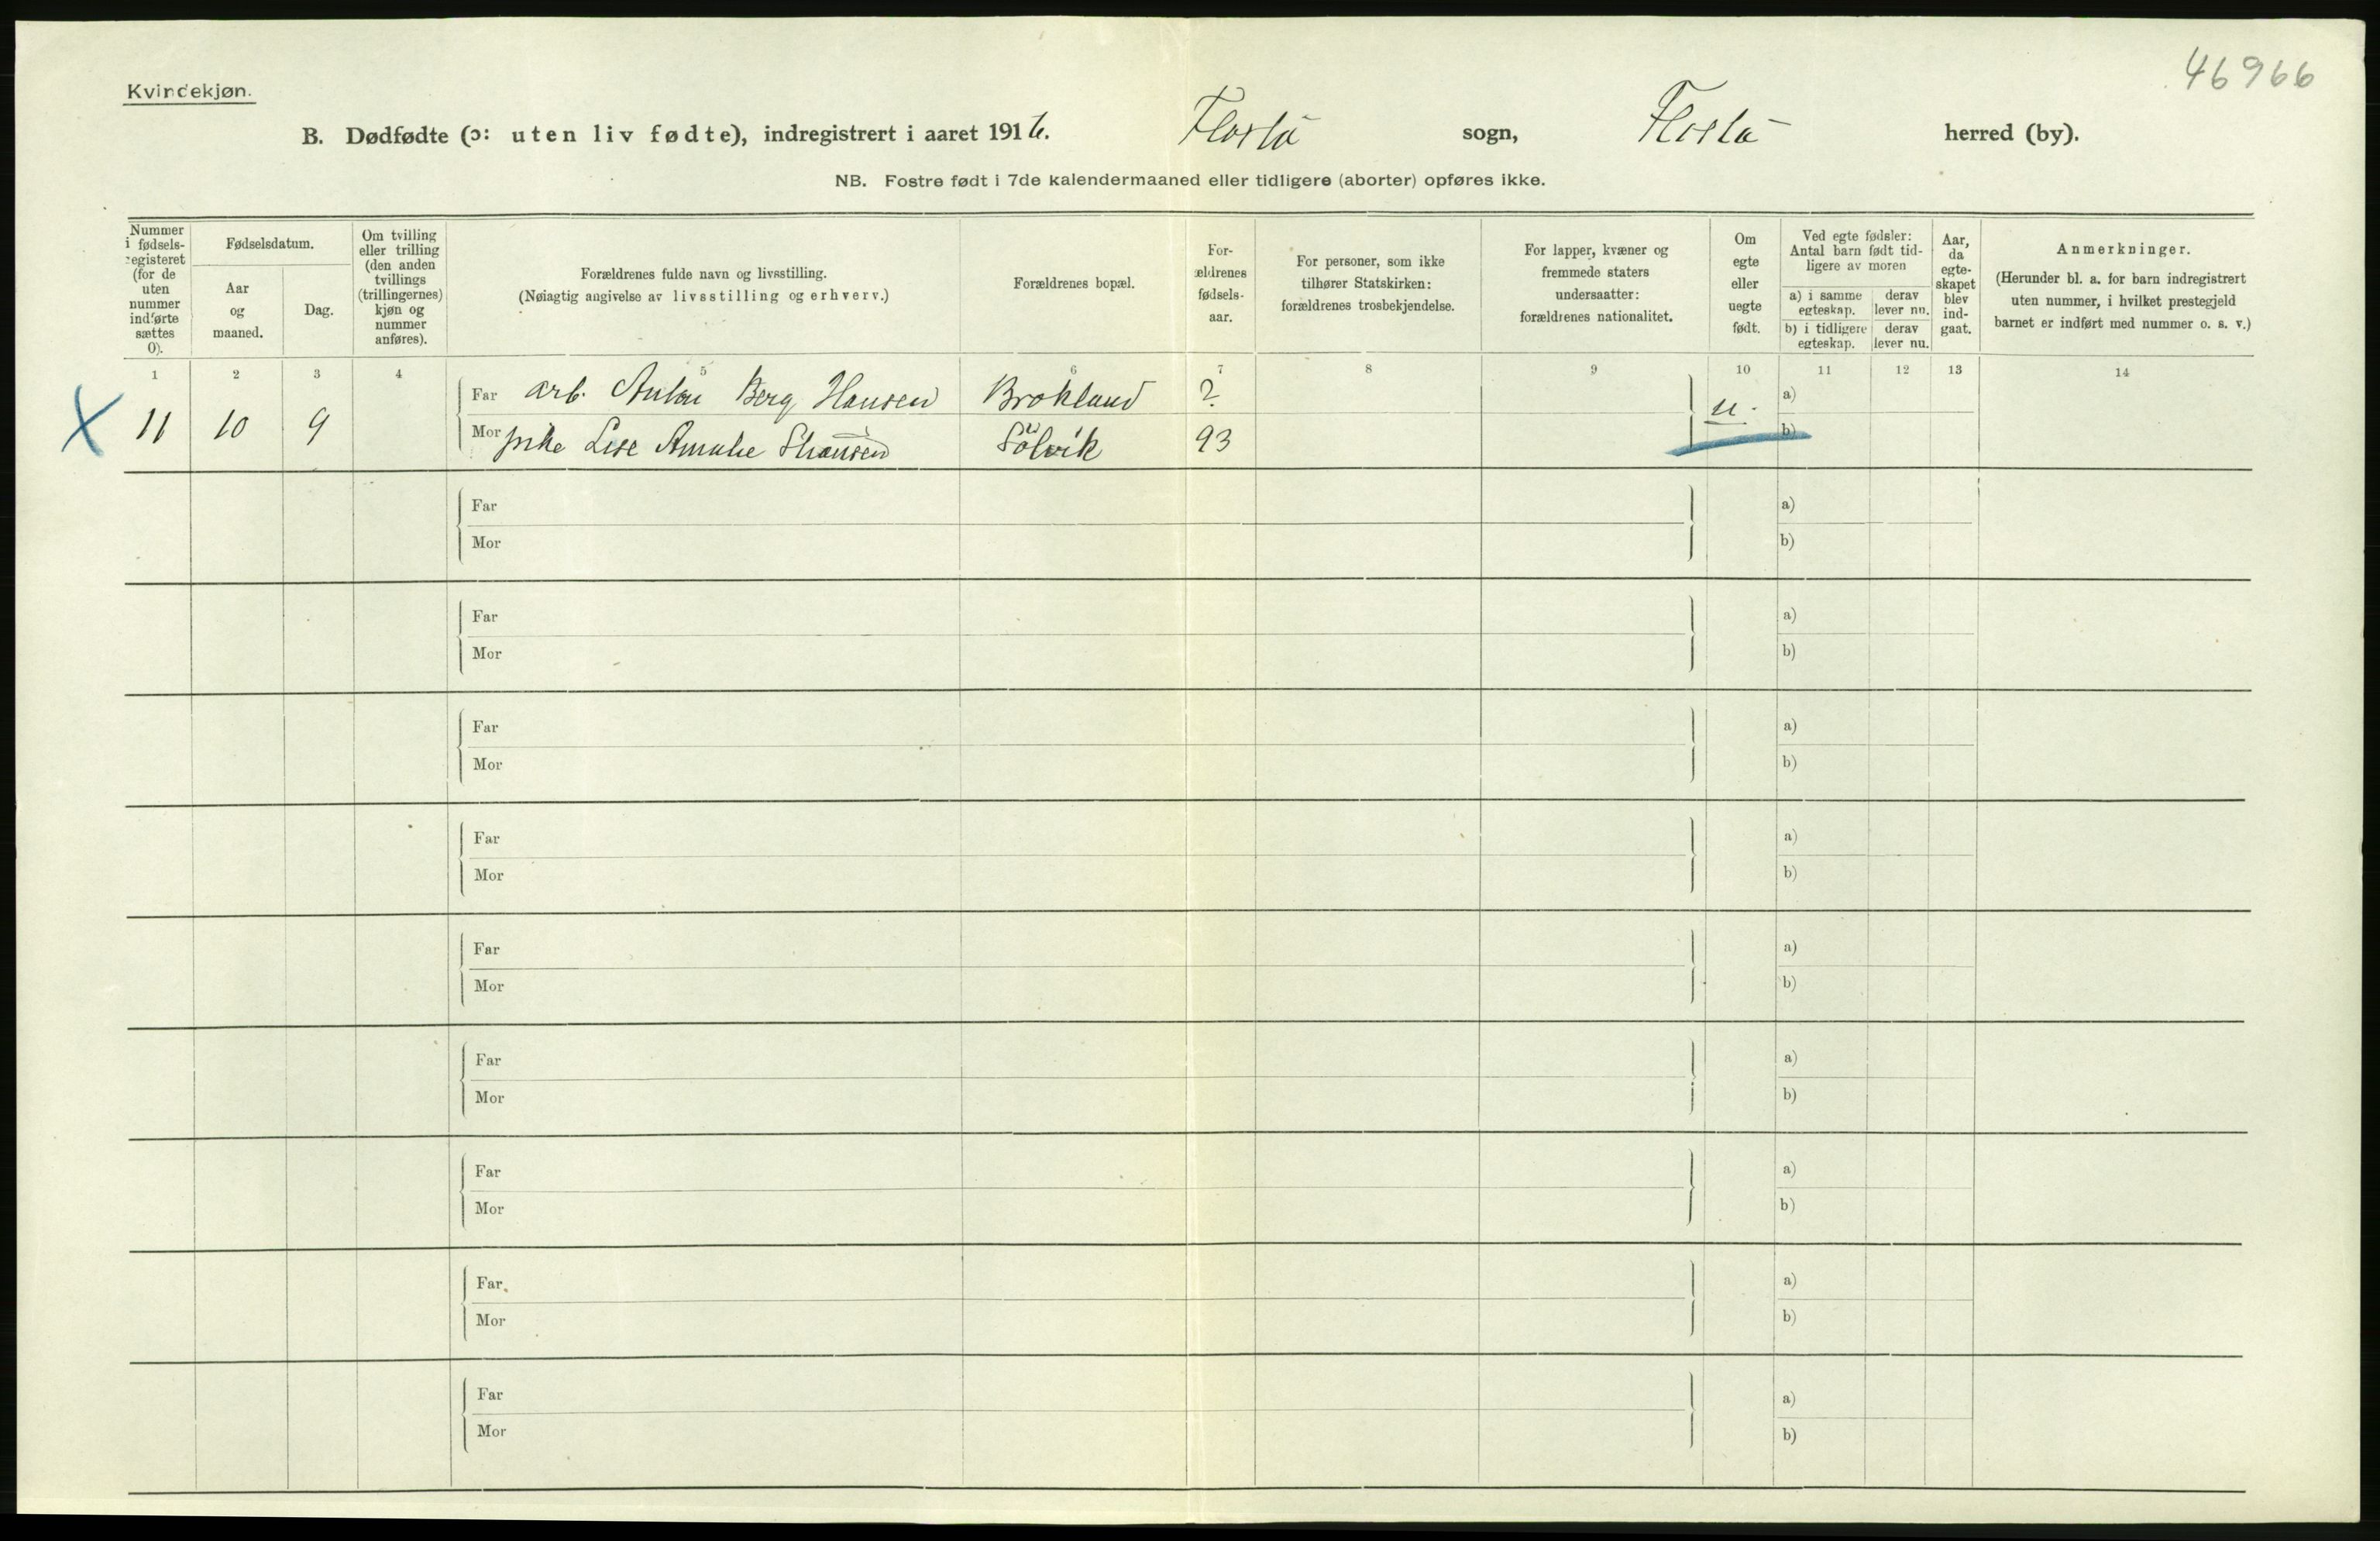 46966
Kvindekjøn.
B. Dødfødte (ɔ: uten liv fødte), indregistrert i aaret 1916. Flosta sogn, Flosta herred (by).
NB. Fostre født i 7de kalendermaaned eller tidligere (aborter) opføres ikke.
Nummer i fødselsregisteret (for de uten nummer indførte sættes 0).
Fødselsdatum.
Aar og maaned.
Dag.
Om tvilling eller trilling (den anden tvillings (trillingernes) kjøn og nummer anføres).
Forældrenes fulde navn og livsstilling.
(Nøiagtig angivelse av livsstilling og erhverv.)
Forældrenes bopæl.
Forældrenes fødselsaar.
For personer, som ikke tilhører Statskirken: forældrenes trosbekjendelse.
For lapper, kvæner og fremmede staters undersaatter: forældrenes nationalitet.
Om egte eller uegte født.
Ved egte fødsler: Antal barn født tidligere av moren
a) i samme egteskap. derav lever nu.
b) i tidligere egteskap. derav lever nu.
Aar, da egteskapet blev indgaat.
Anmerkninger.
(Herunder bl. a. for barn indregistrert uten nummer, i hvilket prestegjeld barnet er indført med nummer o. s. v.)
1 2 3 4 5 6 7 8 9 10 11 12 13 14
X 11 10 9
Far arb. Anton Berg Hansen Brokland ? u. a)
Mor pike Lise Amalie Sølvik 93 b)
Far a)
Mor b)
Far a)
Mor b)
Far a)
Mor b)
Far a)
Mor b)
Far a)
Mor b)
Far a)
Mor b)
Far a)
Mor b)
Far a)
Mor b)
Far a)
Mor b)